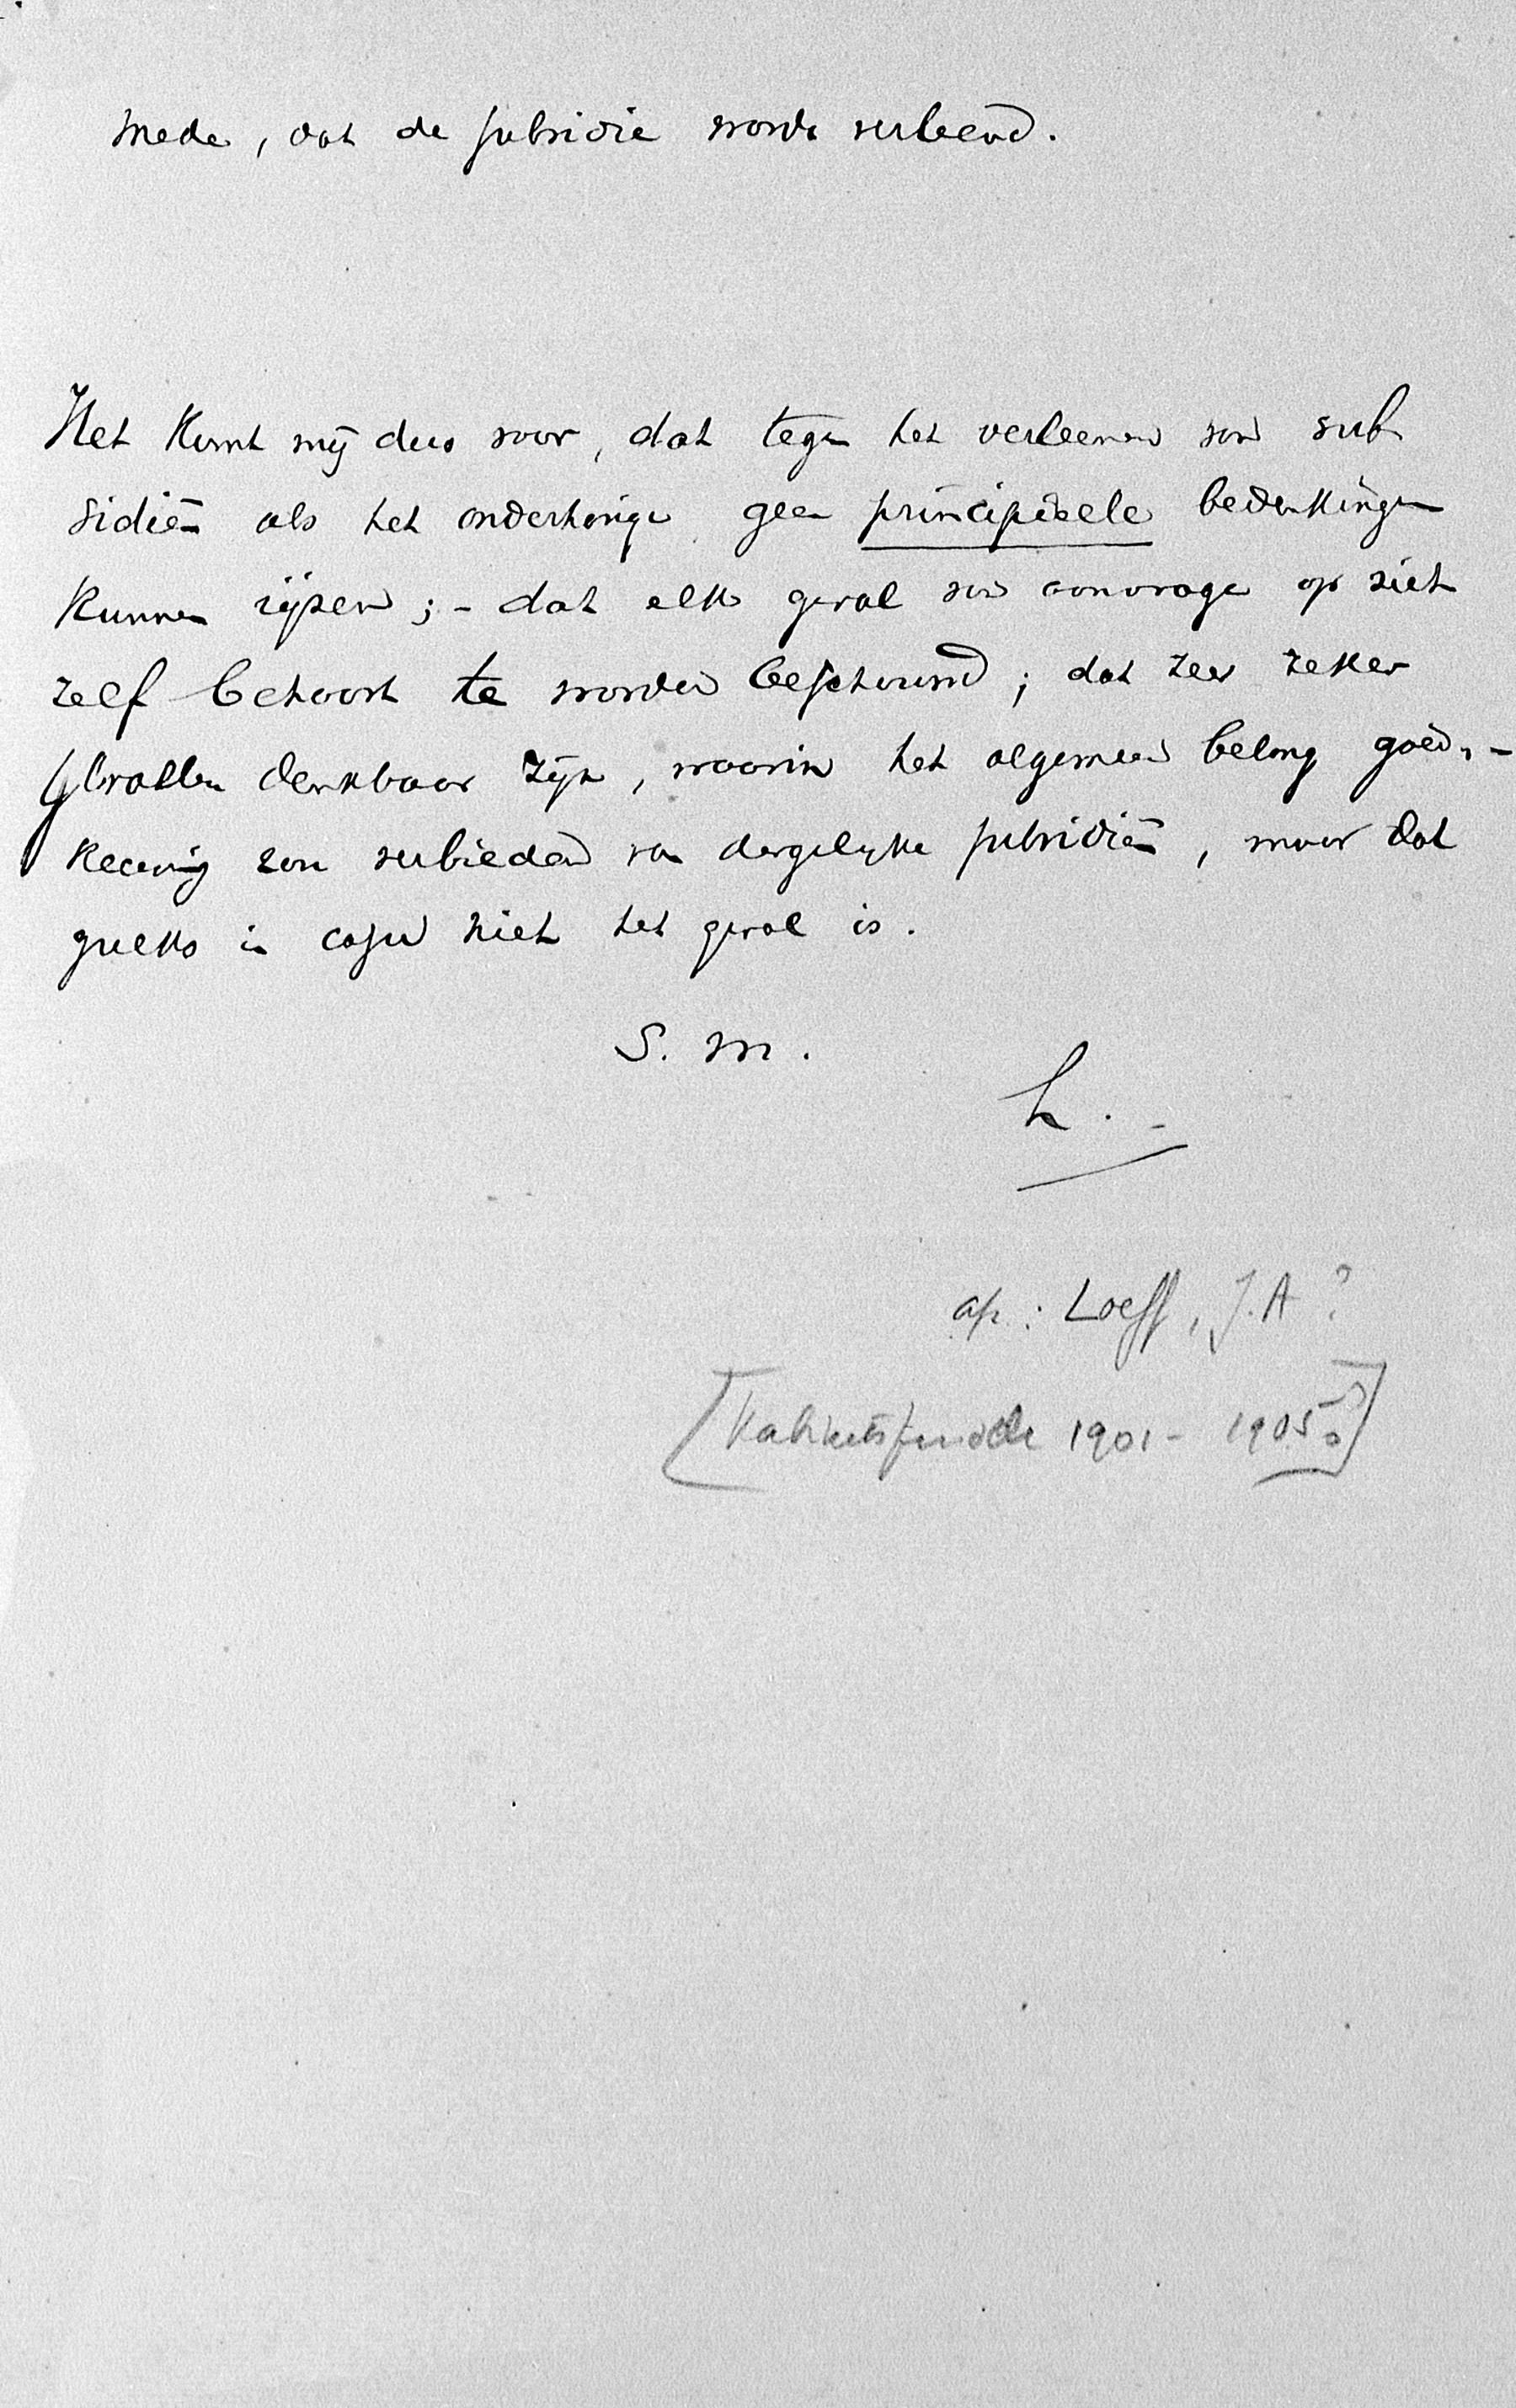 mede, dat de subsidie worde verleend.
Het komt mij dus voor, dat tegen het verleenen van sub
sidiën als het onderhavige geen principieele bedenkingen
kunnen rijzen; - dat elk geval van aanvrage op zich
zelf behoort te worden beschouwd; dat zeer zeker
gevallen denkbaar zijn, waarin het algemeen belang goed-
keuring zou verbieden van dergelijke subsidiën, maar dat
zulks in casu niet het geval is.
S. m.
L. -
afz: Loeff, J.A?
[Kabinetsperiode 1901 - 1905?]